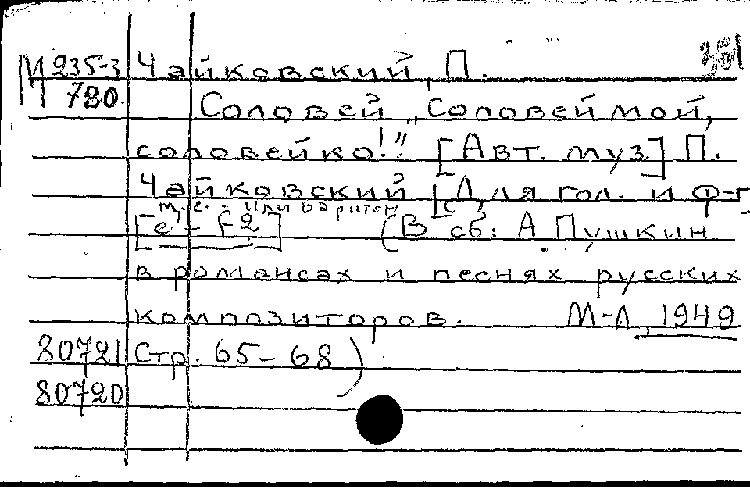 М 235-3 Чайковский, П. 381
720 Соловей „Соловей мой,
соловейко!" [Авт. муз.] П.
Чайковский [Для гол. и ф-п
м. с. или баритон
[e - f2] (В сб: А Пушкин
в романсах и песнях русских
композиторов. М-Л, 1949
80721 Стр. 65-68)
80720